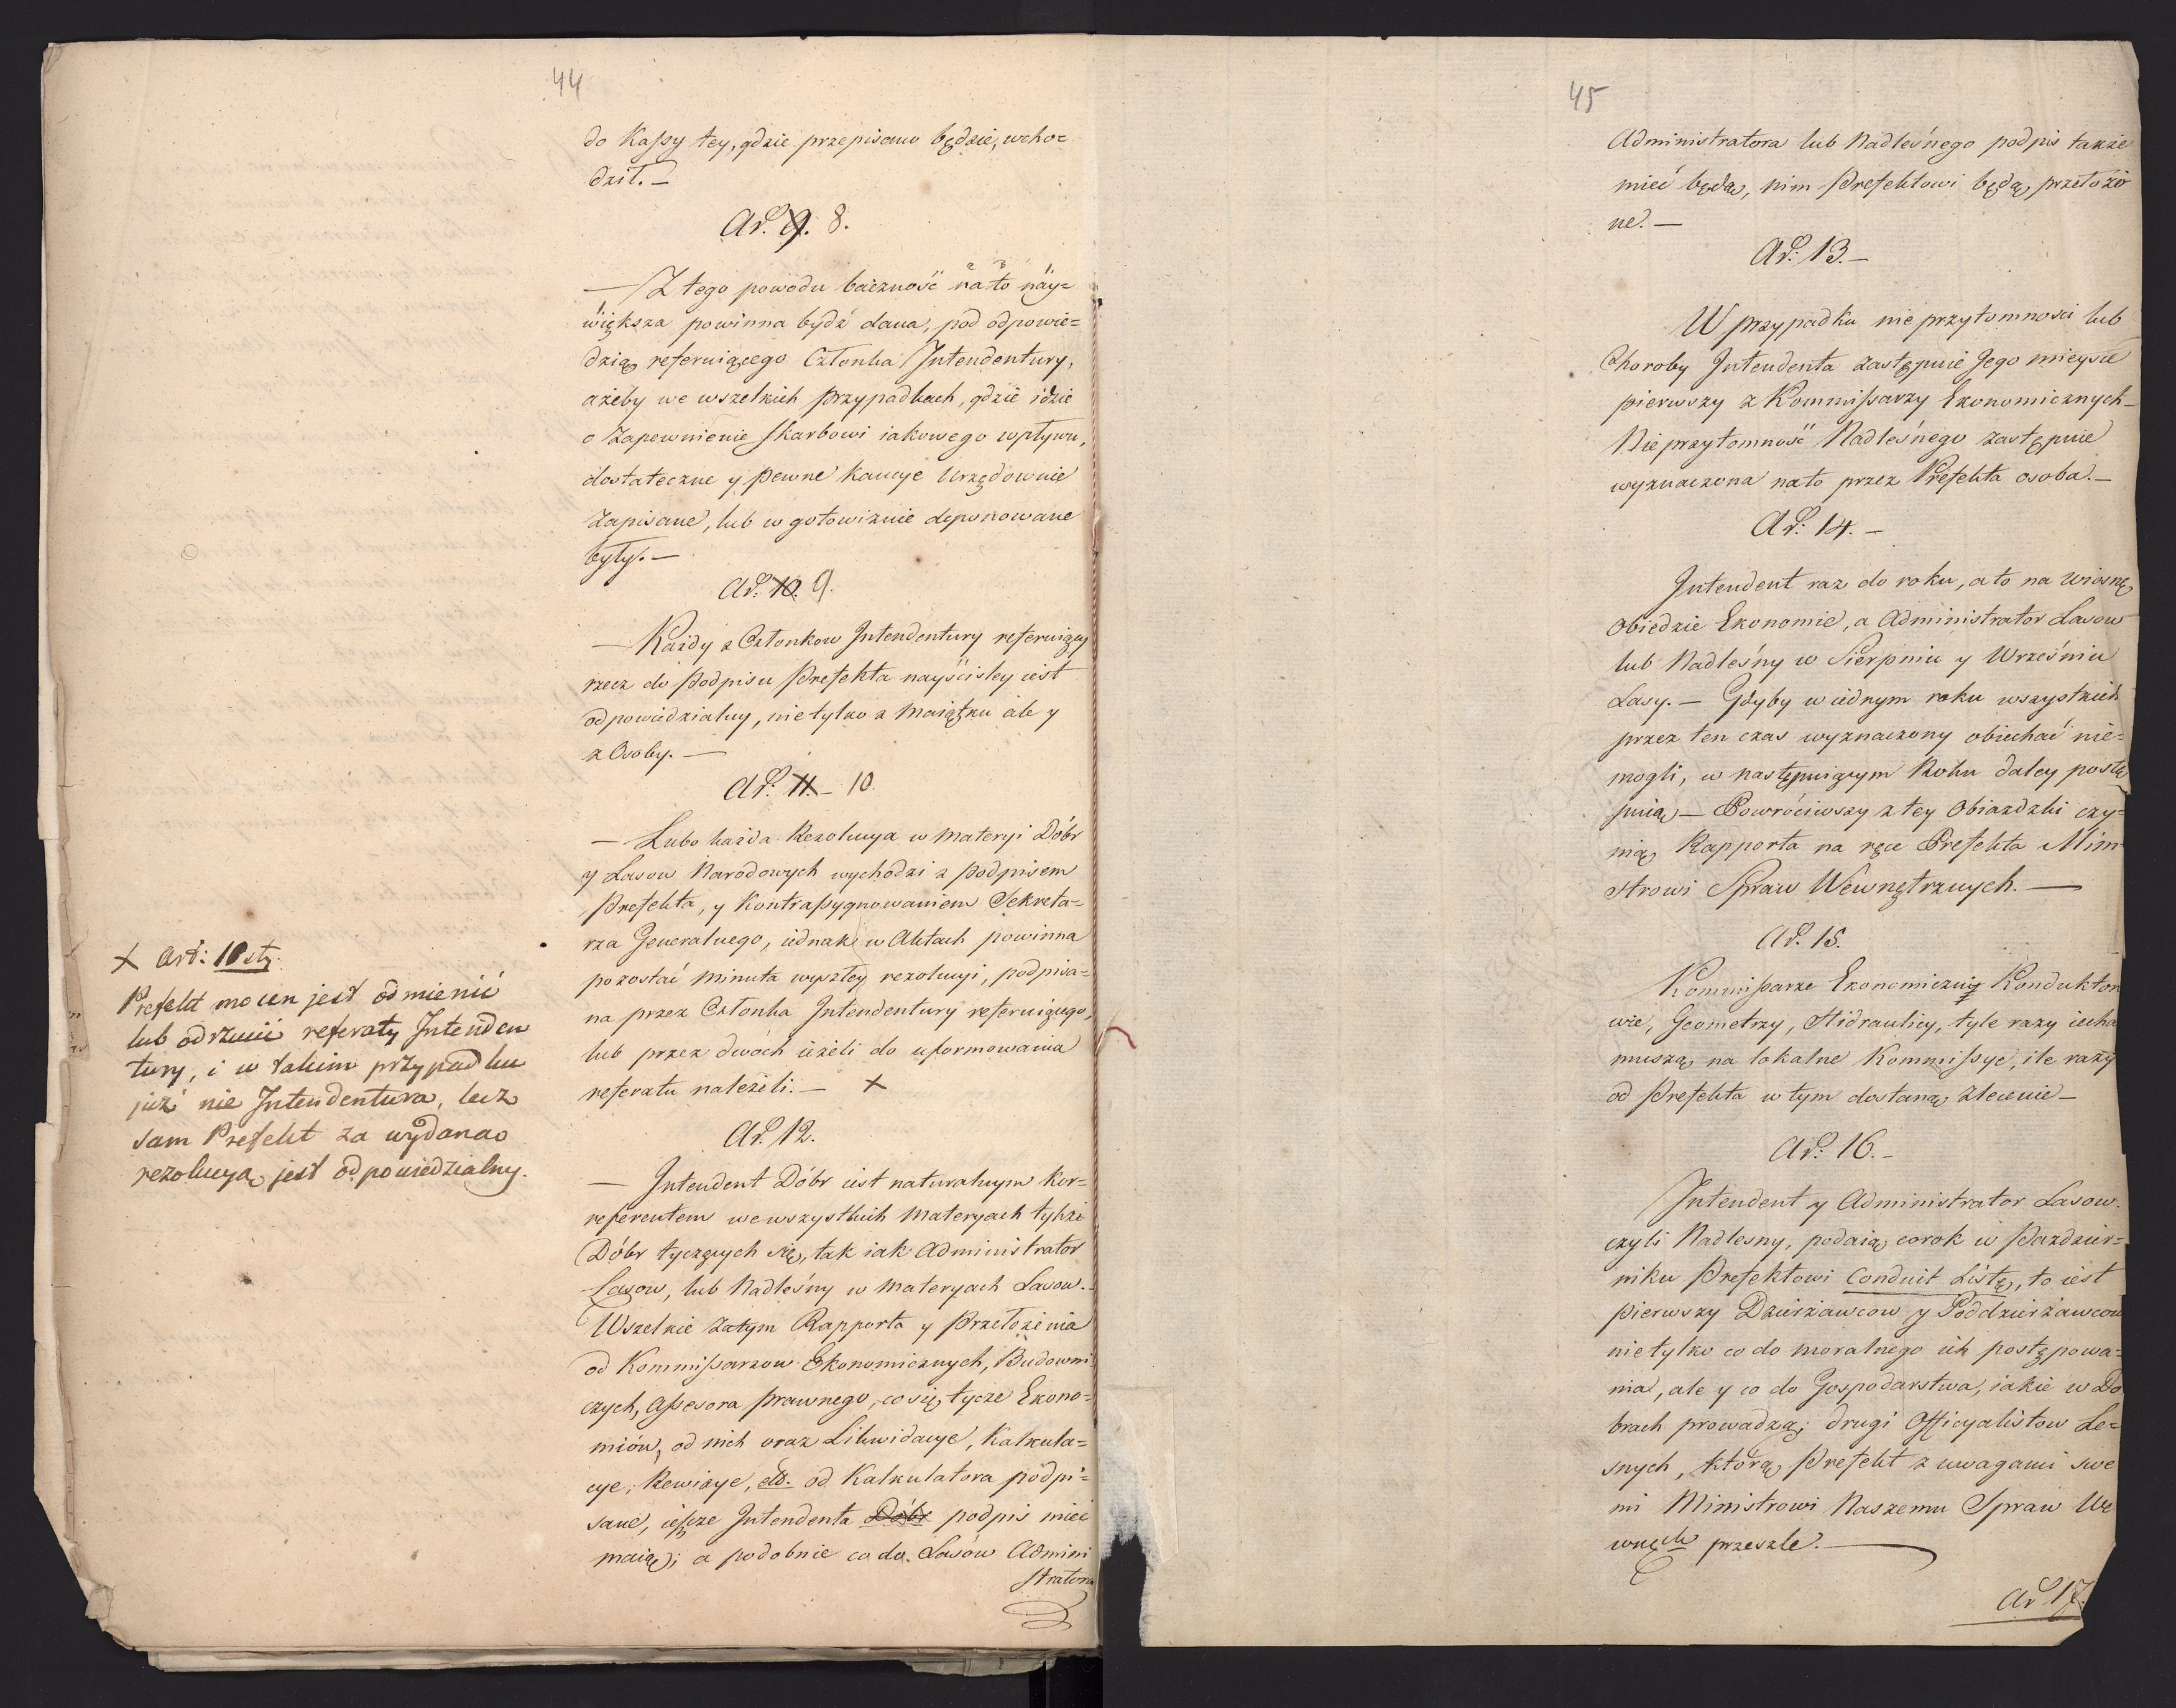 44
do Kassy tey, gdzie przepisano będzie, wcho=
dził. —
Ar. 9. 8.
— Z tego powodu baczność na to nay=
większa powinna bydź dana, pod odpowie=
dzią referuiącego Członka Intendentury,
ażeby we wszelkich przypadkach, gdzie idzie
o zapewnienie skarbowi iakowego wpływu,
dostateczne y pewne kaucye Urzędownie
zapisane, lub w gotowiznie deponowane
były. —
Ar. 10. 9.
— Każdy z Członkow Intendentury referuiący
rzecz do podpisu Prefekta nayściśley iest
odpowiedzialny, nie tylko z Maiątku ale y
z Osoby. —
Ar. 11. — 10.
— Lubo każda Rezolucya w materyi Dóbr
y Lasow Narodowych wychodzi z podpisem
Prefekta, y Kontrassygnowaniem Sekreta=
rza Generalnego, iednak w Aktach powinna
pozostać minuta wyszłey rezolucyi, podpisa=
na przez Członka Intendentury referuiącego,
lub przez dwóch ieżeli do uformowania
referatu należeli. — X
X Art: 10sty.
Prefekt mocen jest odmienić
lub odrzucić referaty Intenden
tury, i w takim przypadku
już nie Intendentura, lecz
sam Prefekt za wydaną
rezolucyą jest odpowiedzialny.
Ar. 12.
— Intendent Dóbr iest naturalnym Kor=
referentem we wszystkich Materyach tychże
Dóbr tyczących się, tak iak Administrator
Lasow, lub Nadleśny w materyach Lasow. —
Wszelkie zatym Rapporta y Przełożenia
od Kommissarzow Ekonomicznych, Budowni
czych, Assesora prawnego, co się tycze Ekono=
miów, od nich oraz Likwidacye, Kalkula=
cye, Rewizye, etc. od Kalkulatora podpi=
sane, ieszcze Intendenta Dóbr podpis mieć
maią; a podobnie co do Lasów Admini
stratora
45
Administratora lub Nadleśnego podpis także
mieć będą, nim Prefektowi będą przełożo
ne. —
Ar: 13. —
W przypadku nieprzytomnosci lub
Choroby Intendenta zastępuie Jego mieysce
pierwszy z Kommissarzy Ekonomicznych —
Nieprzytomność Nadleśnego zastępuie
wyznaczona na to przez Prefekta osoba. —
Ar: 14. —
Intendent raz do roku, a to na wiosnę
Obiedzie Ekonomie, a Administrator Lasow
lub Nadleśny w Sierpniu y Wrześniu
Lasy. — Gdyby w iednym roku wszystkich
przez ten czas wyznaczony obiechać nie=
mogli, w następuiącym Roku daley postę
puią — Powróciwszy z tey Obiazdzki czy=
nią Rapporta na ręce Prefekta Mini
strowi Spraw Wewnętrznych. —
Ar. 15.
Kommissarze Ekonomiczni y Kondukto
wie, Geometrzy, Hidraulicy, tyle razy iecha
muszą na lokalne Kommissye, ile razy
od Prefekta w tym dostaną zlecenie —
Ar: 16. —
Intendent y Administrator Lasow
czyli Nadlesny, podaią corok w Pazdzier=
niku Prefektowi Conduit Listę, to iest
pierwszy Dzierżawcow y Poddzierżawcow
nietylko co do moralnego ich postępowa=
nia, ale y co do Gospodarstwa, iakie w Do
brach prowadzą; drugi Officyalistow Le=
snych, którą Prefekt z uwagami swe
mi Ministrowi Naszemu Spraw We
wnęch przeszle. —
Ar 17.